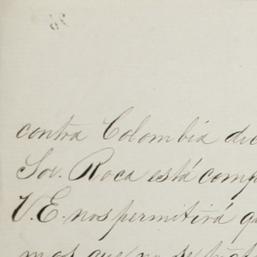 contra Colombia dic
Sor. Roca está comp
V.E. nos permitirá q
mos que no se trat